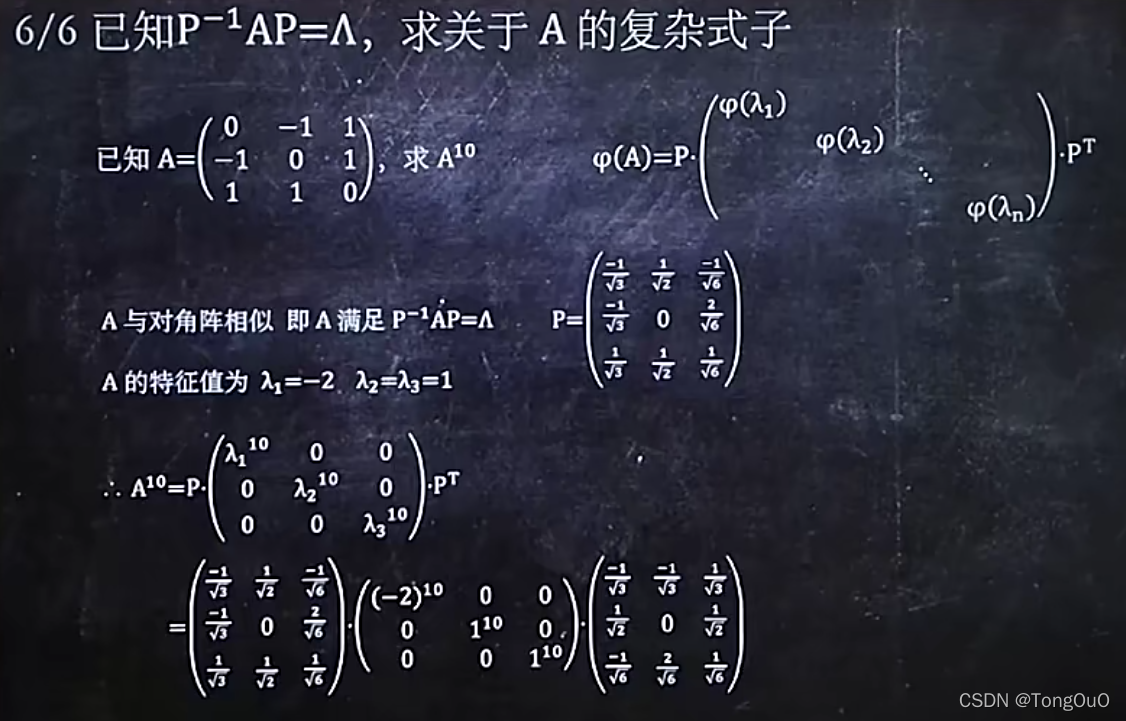 6/6 已知P⁻¹AP=Λ，求关于 A 的复杂式子
已知 A=
0 −1 1
−1 0 1
1 1 0
，求 A¹⁰
φ(A)=P·
φ(λ₁)
φ(λ₂)
⋱
φ(λₙ)
·Pᵀ
A 与对角阵相似 即 A 满足 P⁻¹AP=Λ
P=
-1/√3 1/√2 -1/√6
-1/√3 0 2/√6
1/√3 1/√2 1/√6
A 的特征值为 λ₁=−2 λ₂=λ₃=1
∴ A¹⁰=P·
λ₁¹⁰ 0 0
0 λ₂¹⁰ 0
0 0 λ₃¹⁰
·Pᵀ
=
-1/√3 1/√2 -1/√6
-1/√3 0 2/√6
1/√3 1/√2 1/√6
·
(−2)¹⁰ 0 0
0 1¹⁰ 0
0 0 1¹⁰
·
-1/√3 -1/√3 1/√3
1/√2 0 1/√2
-1/√6 2/√6 1/√6
CSDN @TongOuO